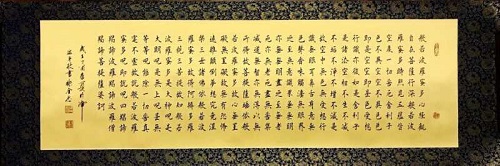 般若波羅蜜多心經觀
自在菩薩行深般若波
羅蜜多時照見五蘊皆
空度一切苦厄舍利子
色不異空空不異色色
即是空空即是色受想
行識亦復如是舍利子
是諸法空相不生不滅
不垢不淨不增不減是
故空中無色無受想行
識無眼耳鼻舌身意無
色聲香味觸法無眼界
乃至無意識界無無明
亦無無明盡乃至無老
死亦無老死盡無苦集
滅道無智亦無得以無
所得故菩提薩埵依般
若波羅蜜多故心無罣
礙無罣礙故無有恐怖
遠離顛倒夢想究竟涅
槃三世諸佛依般若波
羅蜜多故得阿耨多羅
三藐三菩提故知般若
波羅蜜多是大神咒是
大明咒是無上咒是無
等等咒能除一切苦真
實不虛故說般若波羅
蜜多咒即說咒曰揭諦
揭諦波羅揭諦波羅僧
揭諦菩提薩婆訶